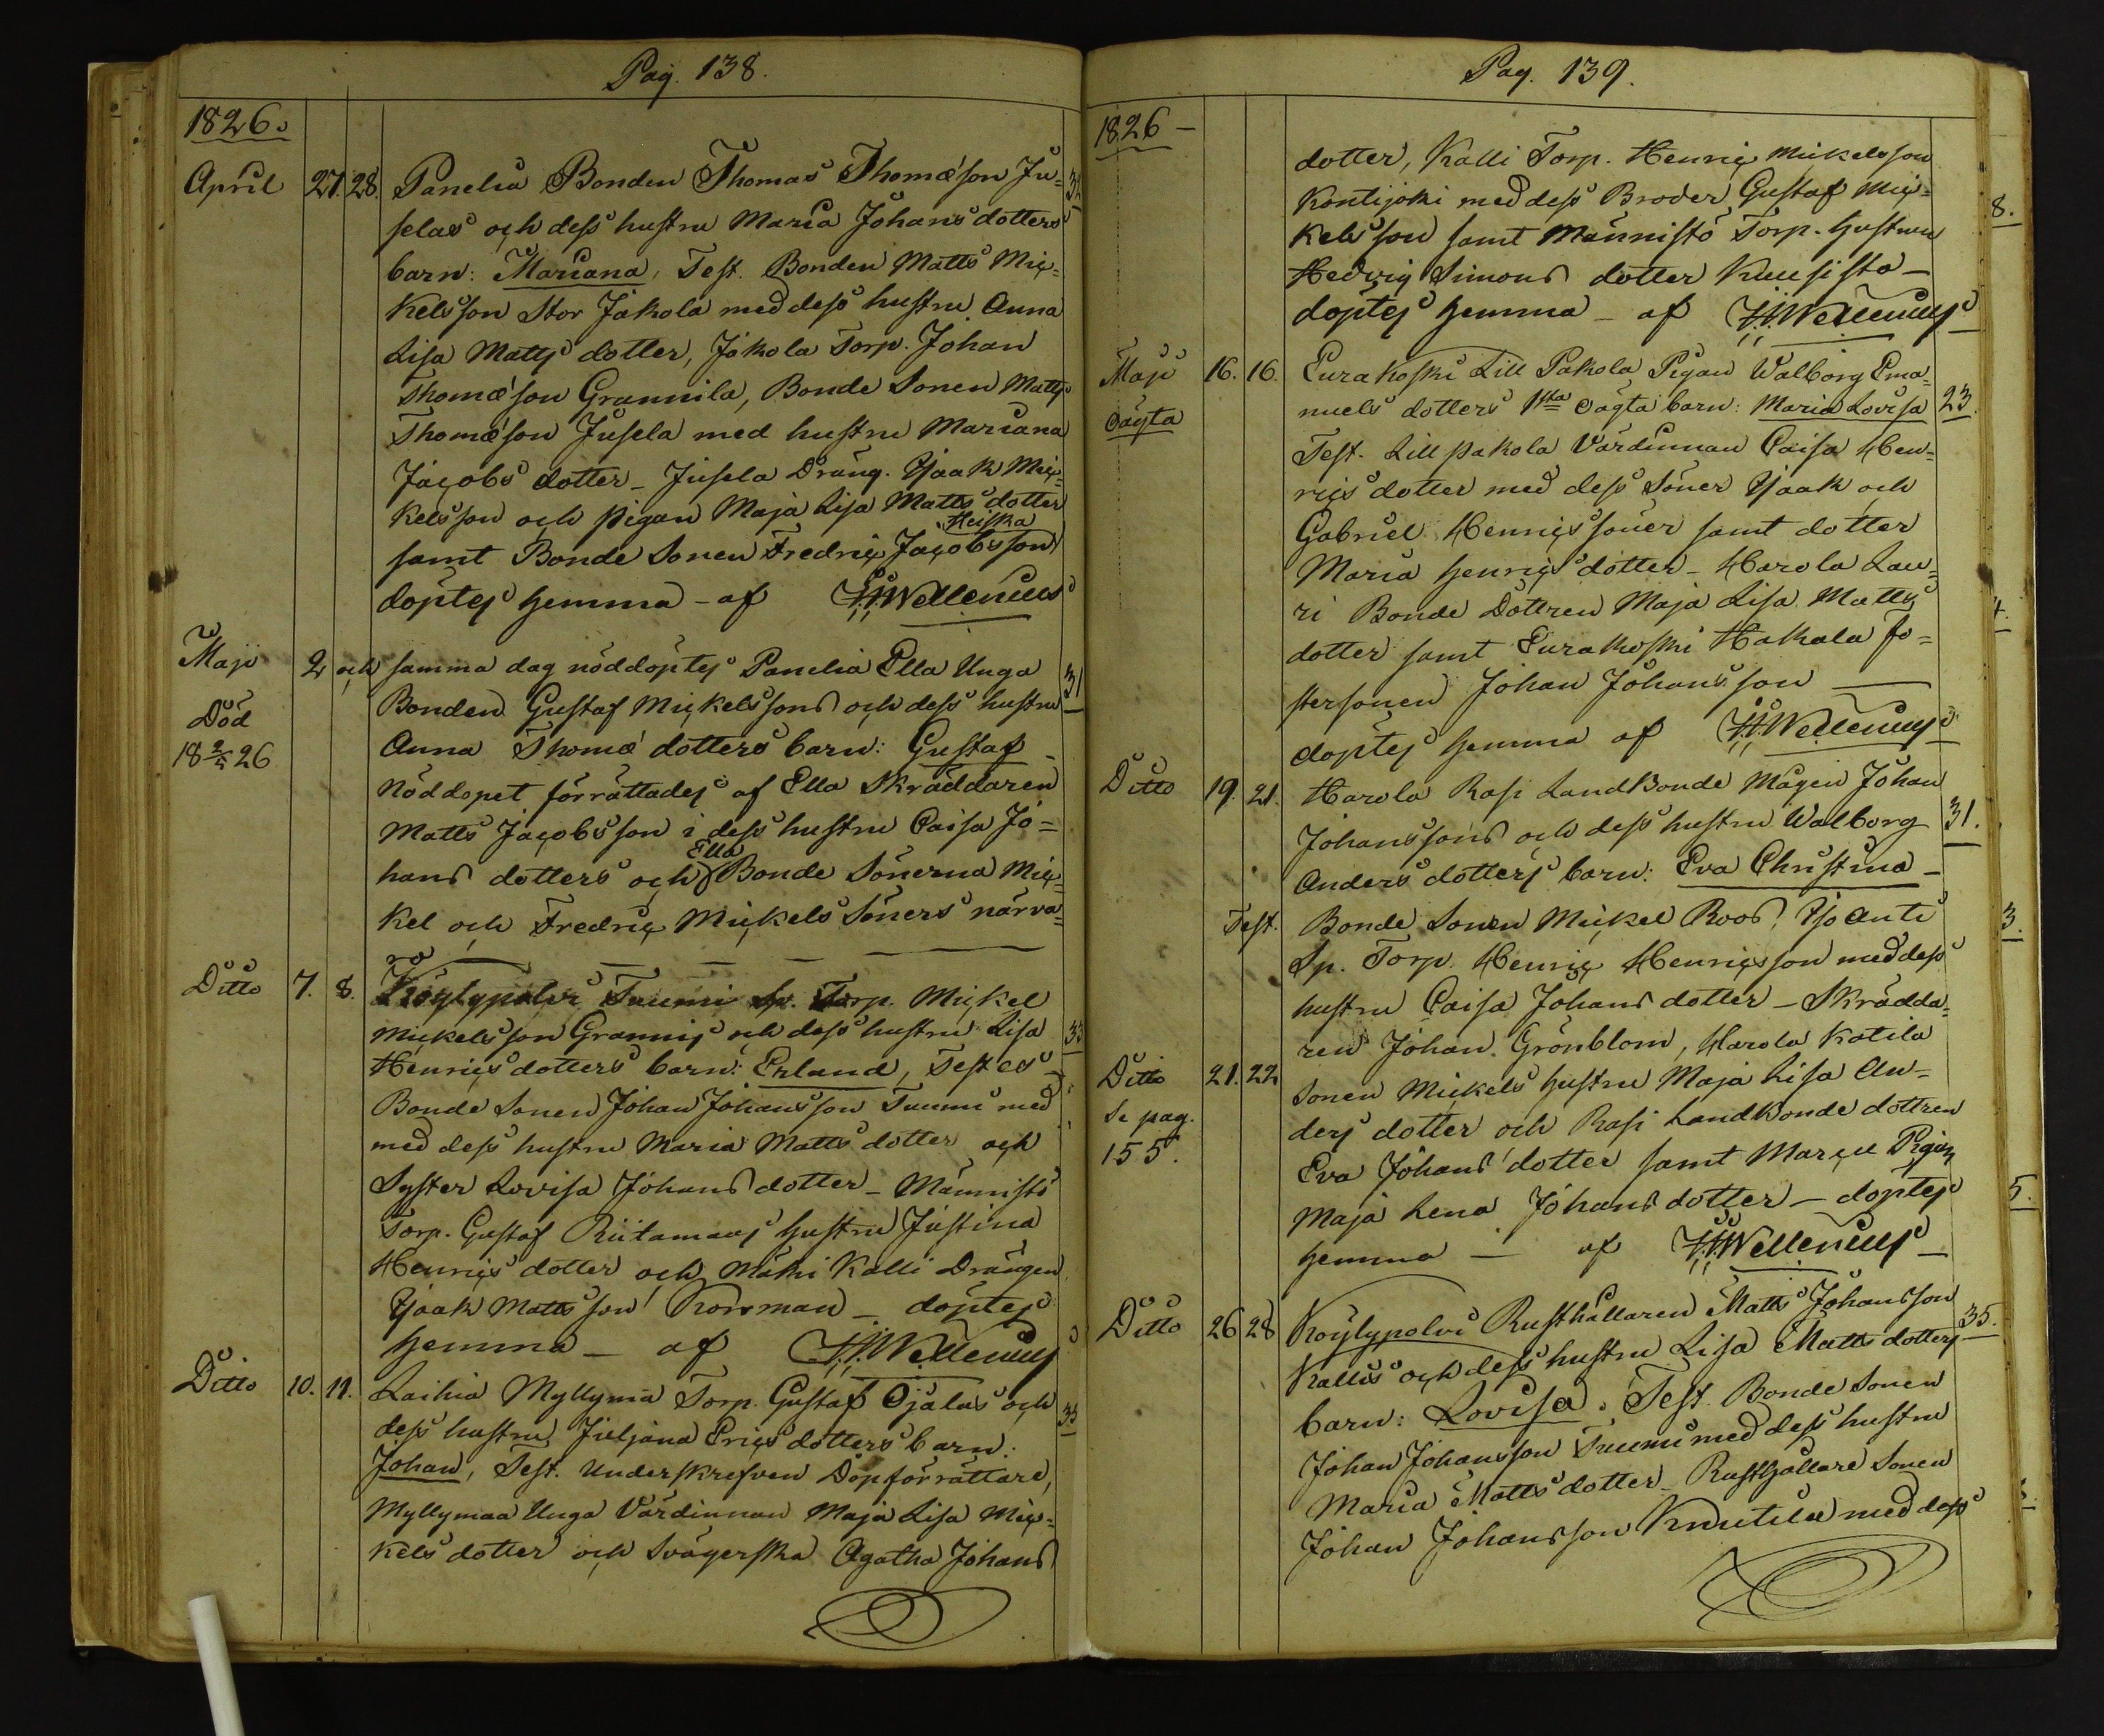 Pag. 138.
1826.
April 27. 28. Panelia Bonden Thomas Thomæson Ju= 32
selas och dess hustru Maria Johans dotters
barn: Mariana, Test. Bonden Matts Mic=
kelsson Stor Jakola med dess hustru Anna
Lisa Matts dotter, Jakola Torp. Johan
Thomæson Grannila, Bonde Sonen Matts
Thomæson Jusela med hustru Mariana
Jacobs dotter - Jusela Dräng. Isaak Mic=
kelsson och pigan Maja Lisa Matts dotter
Heiska
samt Bonde Sonen Fredric Jacobsson
döptes hemma - af H.H. Wellenius
Maji 2 och samma dag nöddöptes Panelia Ella Unga 31
Död Bonden Gustaf Mickelssons och dess hustru
18 2/5 26 Anna Thomæ dotters barn: Gustaf -
Nöddopet förrättades af Ella Skräddaren
Matts Jacobsson i dess hustru Caisa Jo=
Ella
hans dotters och Bonde Sönerna Mic=
kel och Fredric Mickels Söners närva=
ro
Ditto 7. 8. Köylypolvi Tuumi Sp. Torp. Mickel
Mickelsson Grannis och dess hustru Lisa 33
Henrics dotters barn: Erland, Testes -
Bonde Sonen Johan Johansson Tuumi med
med dess hustru Maria Matts dotter och
Syster Lovisa Johans dotter - Männistö
Torp. Gustaf Riitamaas hustru Justina
Henrics dotter och Mäki Kalli Drängen
Isaak Mattsson Korsman - döptes
hemma - af H.H. Wellenius
Ditto 10. 11. Laihia Myllymä Torp. Gustaf Ojalas och 33
dess hustru Juljana Erics dotters barn:
Johan, Test. Underskrefven Dopförrättare,
Myllymaa Unga Värdinnan Maja Lisa Mic=
kels dotter och Svägerska Agatha Johans
Pag. 139.
1826 -
dotter, Kalli Torp. Henric Mickelsson
Kontijoki med dess Broder Gustaf Mic=
kelsson samt Männistö Torp. hustrun
Hedvig Simons dotter Kuusisto -
döptes hemma - af H.H. Wellenius
Maji 16. 16. Eurakoski Lill Pakola Pigan Walborg Ema=
Oägta nuels dotters 1sta oägta barn: Maria Lovisa 23.
Test. Lill pakola Värdinnan Caisa Hen=
rics dotter med dess Söner Isaak och
Gabriel Henricssöner samt dotter
Maria Henrics dotter - Harola Lau=
ri Bonde Dottren Maja Lisa Matts
dotter samt Eurakoski Hakala Fo=
stersonen Johan Johansson
döptes hemma af H.H. Wellenius
Ditto 19. 21. Harola Rasi LandBonde Mågen Johan
Johanssons och dess hustru Walborg 31.
Anders dotters barn: Eva Christina -
Test. Bonde Sonen Mickel Roos, Iso Anti
Sp. Torp. Henric Henricsson med dess
hustru Caisa Johans dotter - Skrädda=
ren Johan Grönblom, Harola Katila
Ditto 21. 22 Sonen Mickels hustru Maja Lisa An=
Se pag. ders dotter och Rasi LandBonde dottren
155. Eva Johans dotter samt Pigan
Maja Lena Johans dotter - döptes
hemma - af H.H. Wellenius
Ditto 26 28 Köylypolvi Rusthållaren Matts Johansson 35.
Kallis och dess hustru Lisa Matts dotters
barn: Lovisa. Test. Bonde Sonen
Johan Johansson Tuumi med dess hustru
Maria Matts dotter - Rusthållare Sonen
Johan Johansson Knutila med dess
8.
4.
3.
5.